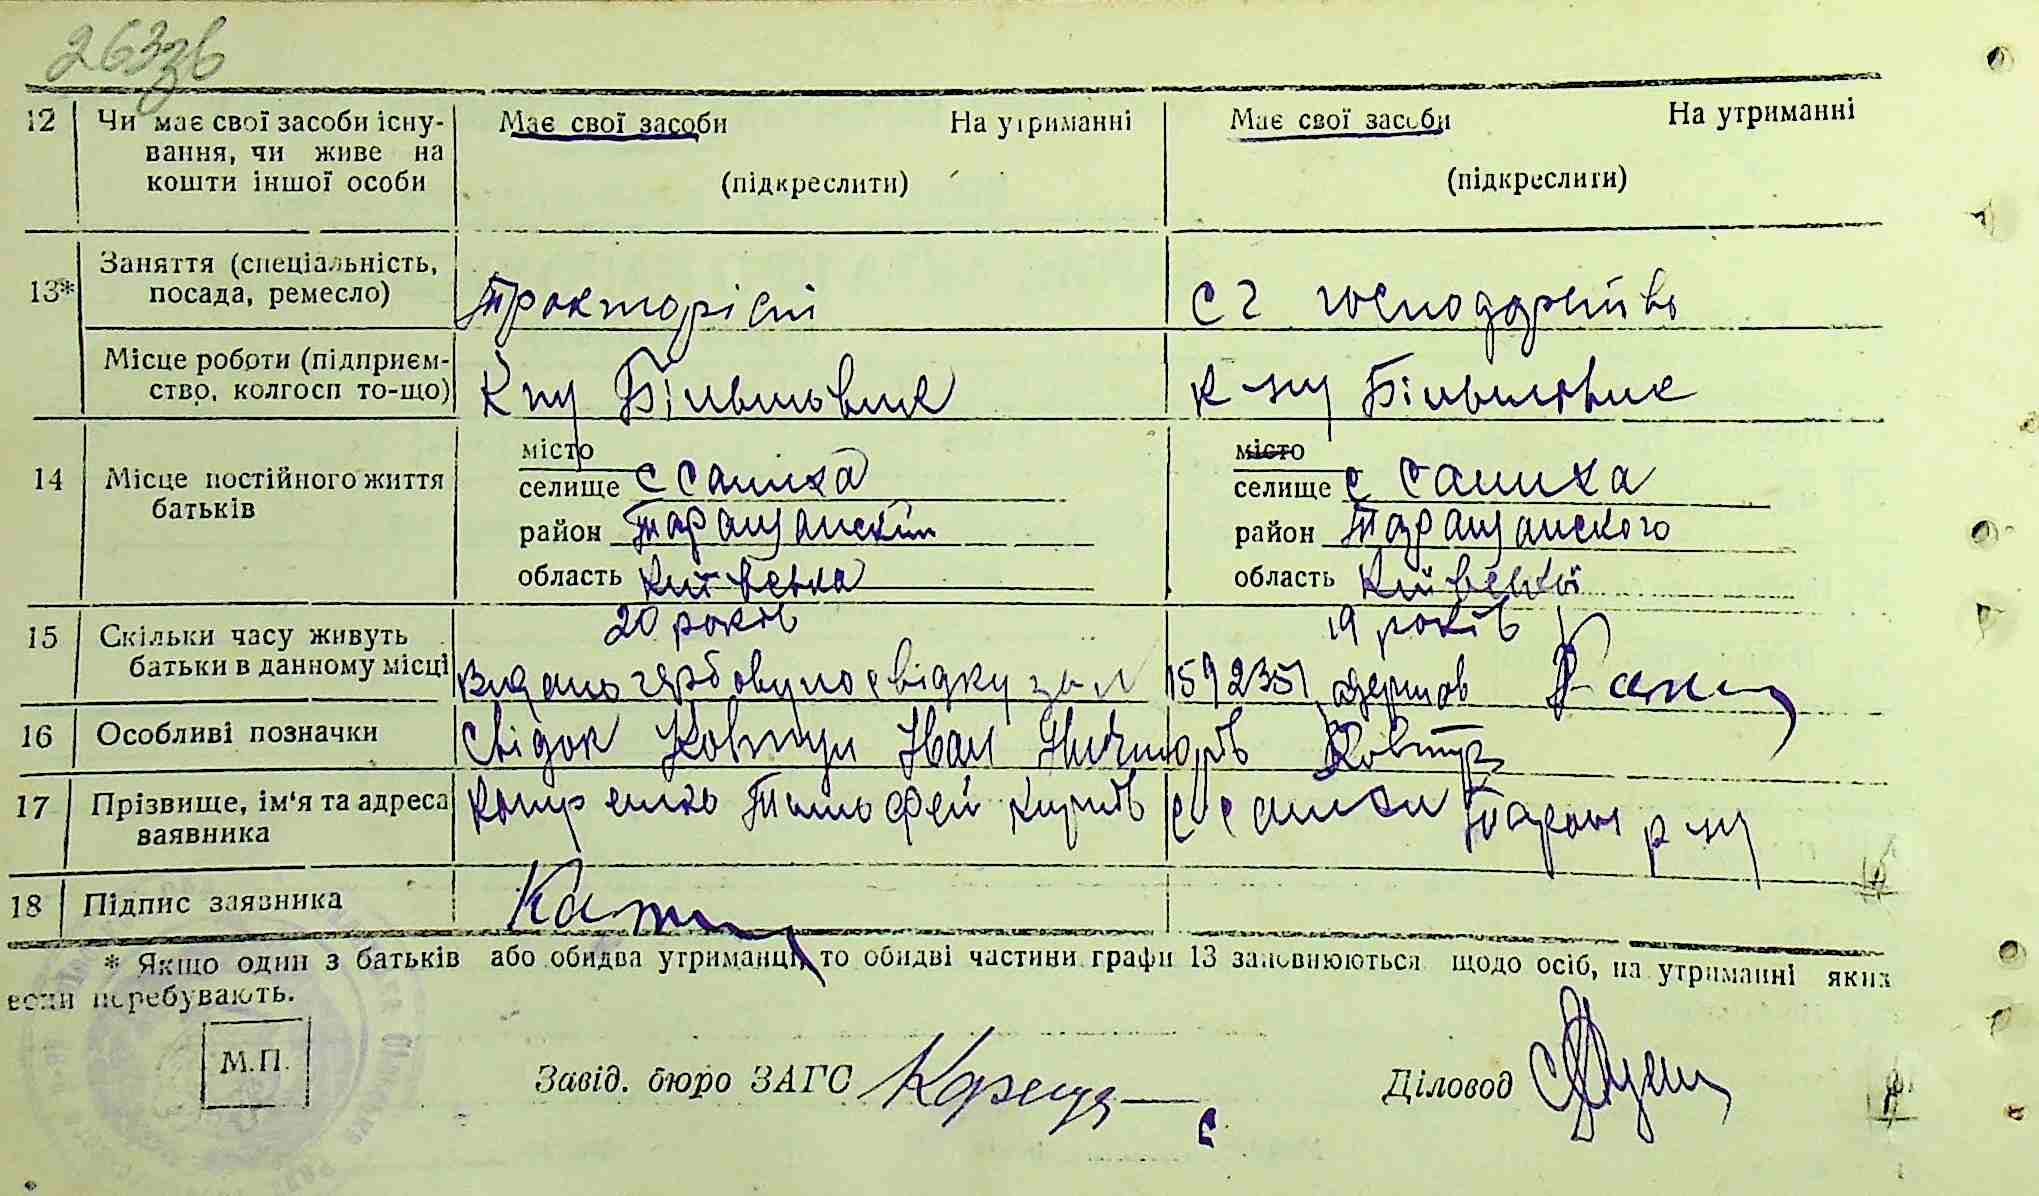 263зв
12 Чи має свої засоби існу- Має свої засоби На утриманні Має свої засоби На утриманні
вання, чи живе на
кошти іншої особи (підкреслити) (підкреслити)
13* Заняття (спеціальність,
посада, ремесло) Тракторіст с г господарство
Місце роботи (підприєм-
ство, колгосп то-що) Більшовик Більшовик
14 Місце постійного життя
батьків
місто місто
селище с Салиха селище с Салиха
район Таращанский район Таращанского
область Київська область Київської
15 Скільки часу живуть 20 років 19 років
батьки в данному місці Видано гербову посвідку за №
16 Особливі позначки Свідок Ковтун Іван
17 Прізвище, ім'я та адреса
заявника Тимофей с Салихи Таращ р ну
18 Підпис заявника
* Якщо один з батьків або обидва утриманці, то обидві частини графи 13 заповнюються щодо осіб, на утриманні яких
вони перебувають.
М.П.
Завід. бюро ЗАГС Діловод